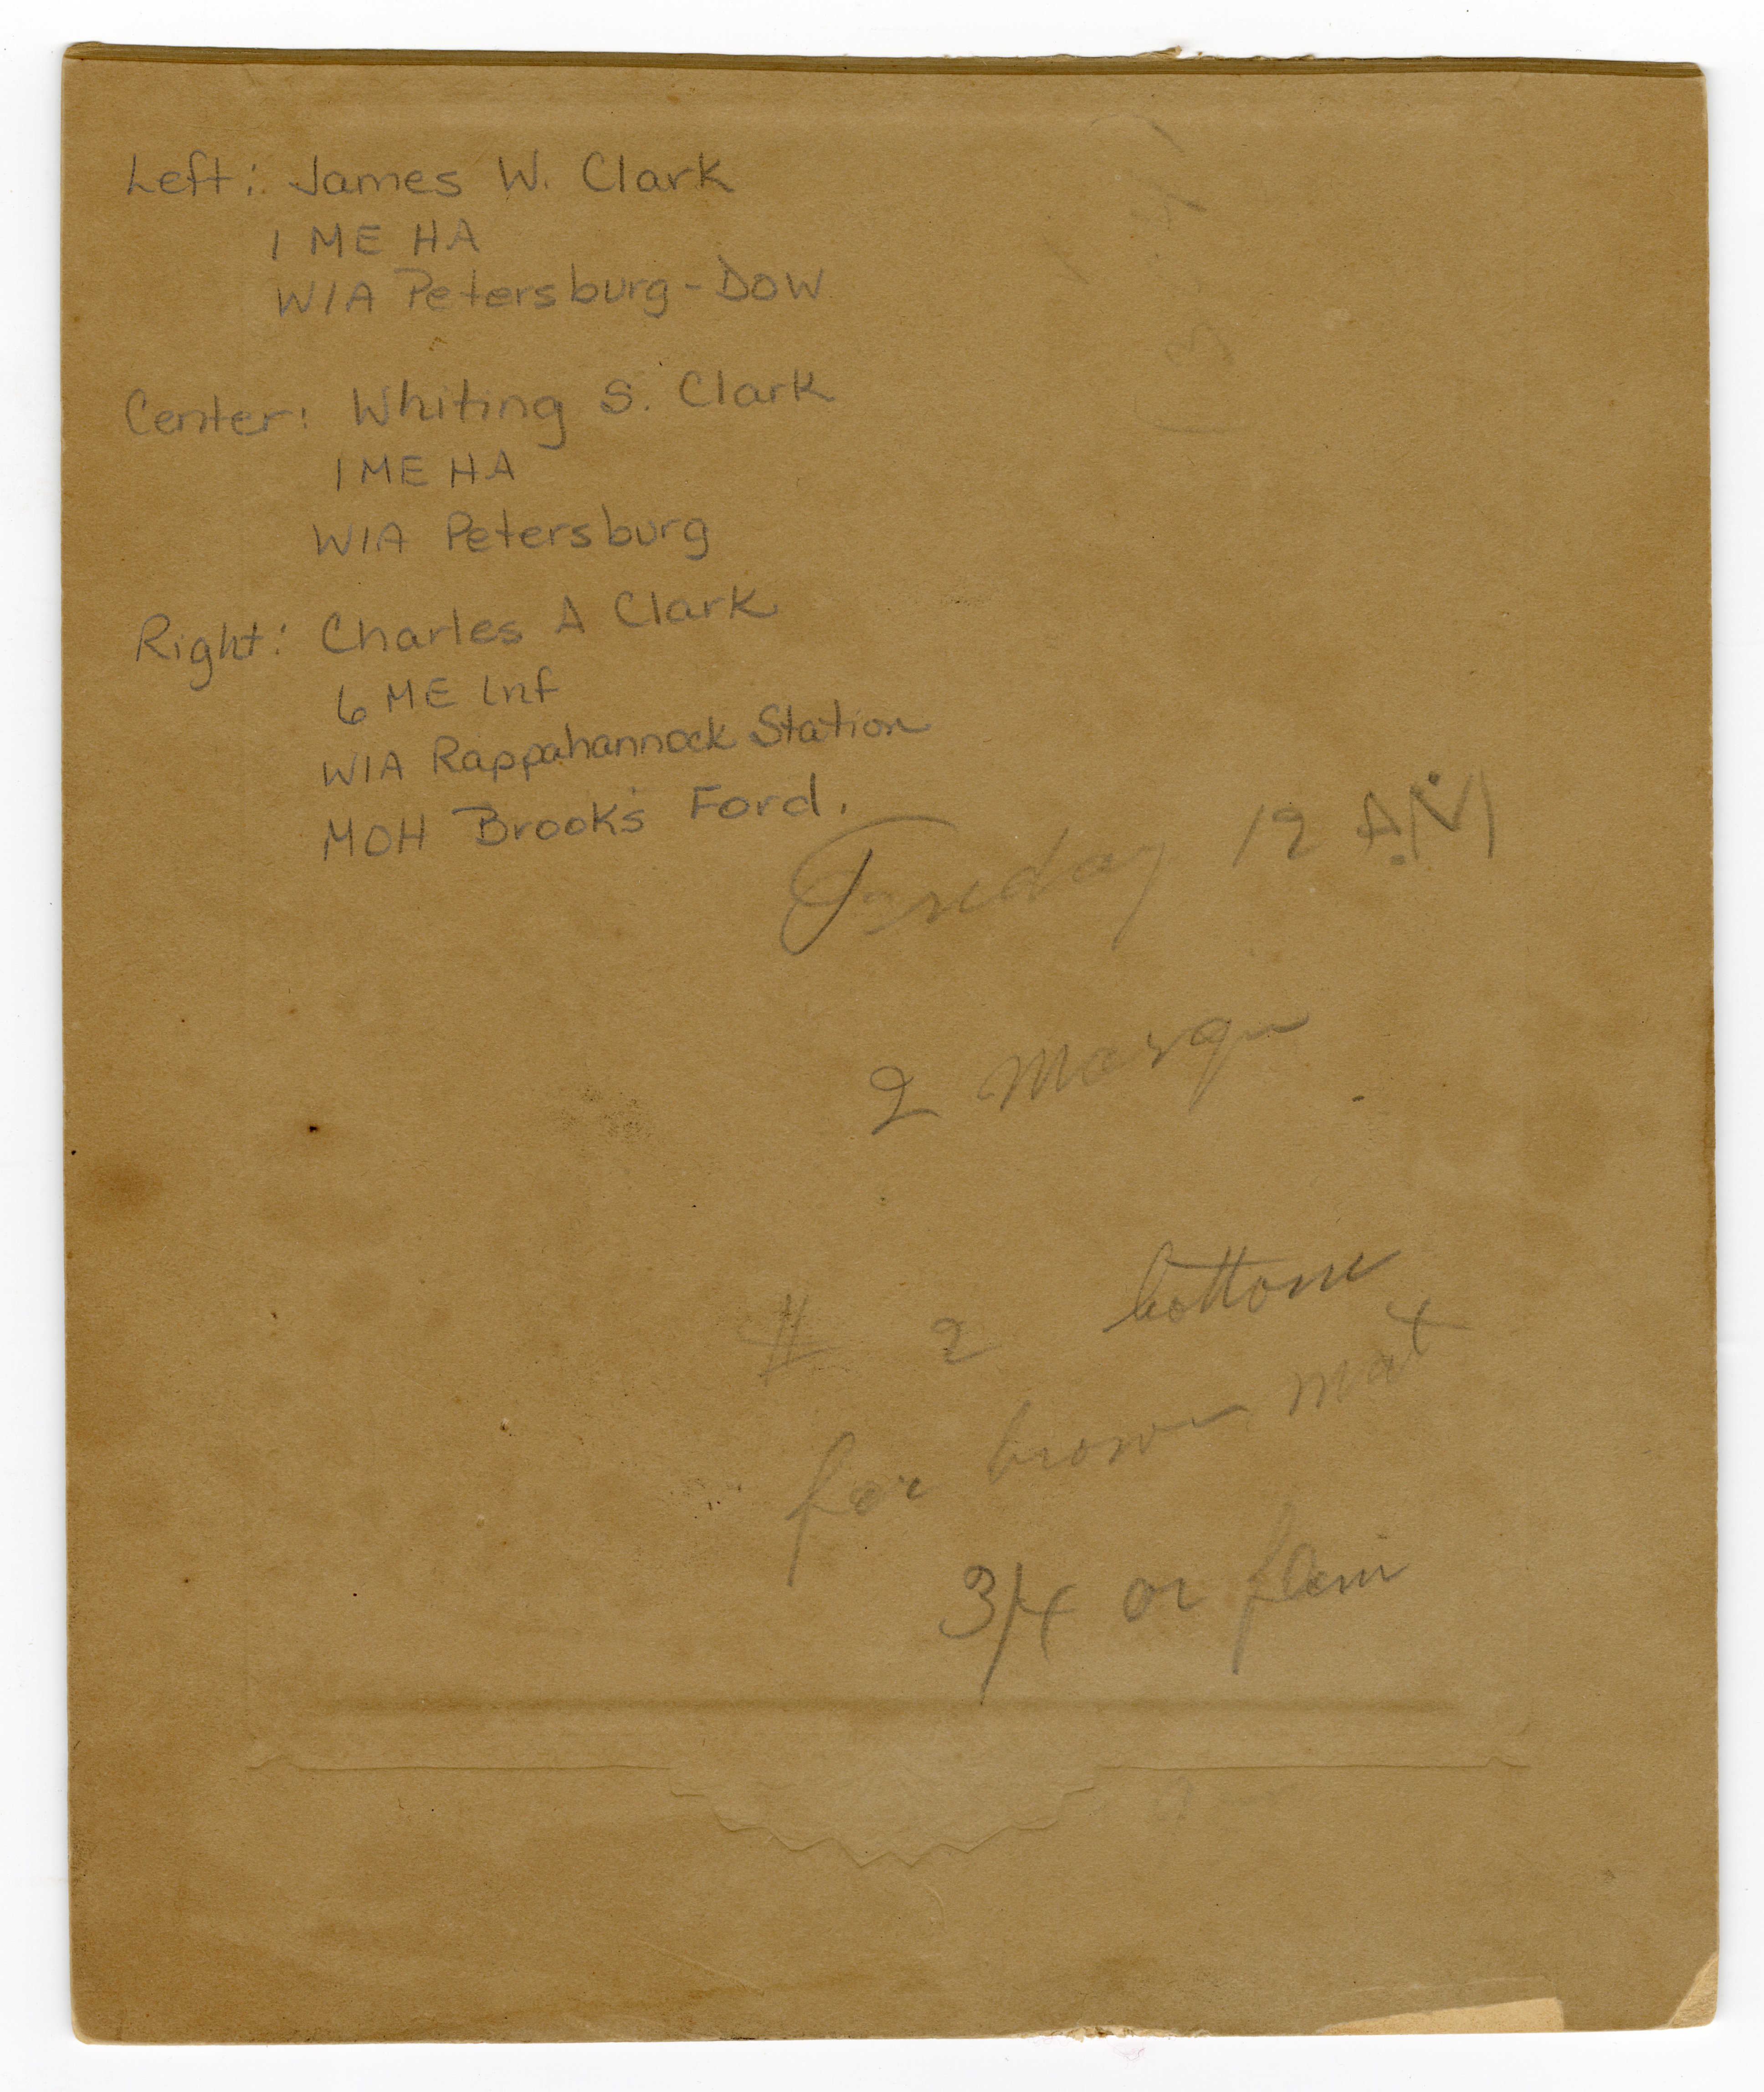 Left: James W. Clark
1 ME HA
WIA Petersburg - DOW
Center: Whiting S. Clark
1 ME HA
WIA Petersburg
Right: Charles A Clark
6 ME Inf
WIA Rappahannock Station
MOH Brooks Ford.
Tuesday 12 A.M
2
# 2 bottom
for brown mat
3/4 or